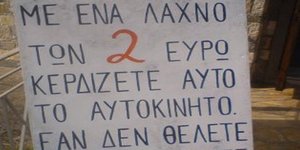 ΜΕ ΕΝΑ ΛΑΧΝΟ
ΤΩΝ 2 ΕΥΡΩ
ΚΕΡΔΙΖΕΤΕ ΑΥΤΟ
ΤΟ ΑΥΤΟΚΙΝΗΤΟ.
ΕΑΝ ΔΕΝ ΘΕΛΕΤΕ